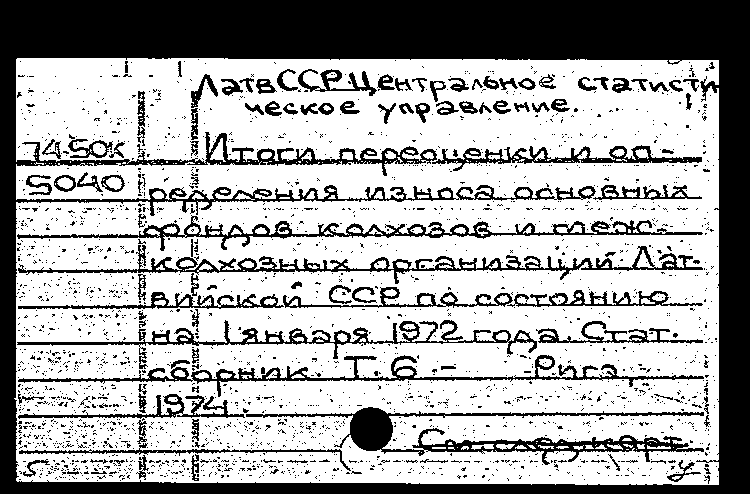 ЛатвССР.Центральное статисти
ческое управление.
74-50К
Итоги переоценки и оп-
5040
ределения износа основных
фондов колхозов и меж-
колхозных организаций Лат-
вийской ССР по состоянию
на 1 января 1972 года. Стат.
сборник. Т. 6 .- Рига,
1974.
См. след. карт
5